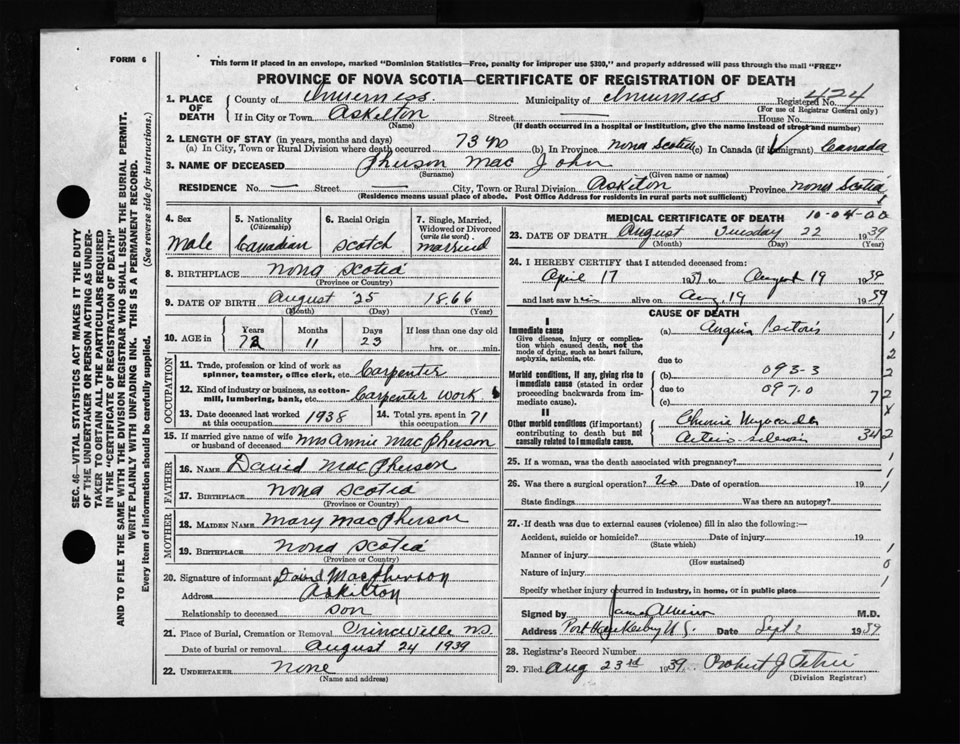 FORM 6
This form if placed in an envelope, marked "Dominion Statistics—Free, penalty for improper use $300," and properly addressed will pass through the mail "FREE"
PROVINCE OF NOVA SCOTIA—CERTIFICATE OF REGISTRATION OF DEATH
1. PLACE OF DEATH County of Inverness. Municipality of Inverness Registered No. 424
(For use of Registrar General only)
If in City or Town Askilton Street — House No.
(Name) (If death occurred in a hospital or institution, give the name instead of street and number)
2. LENGTH OF STAY (in years, months and days)
(a) In City, Town or Rural Division where death occurred 73 yrs (b) In Province Nova Scotia (c) In Canada (if immigrant) Canada
3. NAME OF DECEASED Pherson Mac John
(Surname) (Given name or names)
RESIDENCE No. — Street — City, Town or Rural Division Askilton Province Nova Scotia
(Residence means usual place of abode. Post Office Address for residents in rural parts not sufficient)
4. Sex Male
5. Nationality (Citizenship) Canadian
6. Racial Origin Scotch
7. Single, Married, Widowed or Divorced (write the word) married
8. BIRTHPLACE Nova Scotia
(Province or Country)
9. DATE OF BIRTH August 25 1866
(Month) (Day) (Year)
10. AGE in Years 72 Months 11 Days 23 If less than one day old hrs. or min.
OCCUPATION
11. Trade, profession or kind of work as spinner, teamster, office clerk, etc. Carpenter
12. Kind of industry or business, as cotton-mill, lumbering, bank, etc. Carpenter work
13. Date deceased last worked at this occupation 1938 14. Total yrs. spent in this occupation 71
15. If married give name of wife or husband of deceased Mrs Annie MacPherson
FATHER
16. NAME David MacPherson
17. BIRTHPLACE Nova Scotia
(Province or Country)
MOTHER
18. MAIDEN NAME Mary MacPherson
19. BIRTHPLACE Nova Scotia
(Province or Country)
20. Signature of informant David MacPherson
Address Askilton
Relationship to deceased son
21. Place of Burial, Cremation or Removal N.S.
Date of burial or removal August 24 1939
22. UNDERTAKER None
(Name and address)
MEDICAL CERTIFICATE OF DEATH 10-04-00
23. DATE OF DEATH August Tuesday 22 1939
(Month) (Day) (Year)
24. I HEREBY CERTIFY that I attended deceased from:
April 17 1939 to August 19 1939
and last saw him alive on Aug. 19 1939
CAUSE OF DEATH
I
Immediate cause
Give disease, injury or complication which caused death, not the mode of dying, such as heart failure, asphyxia, asthenia, etc.
(a) Angina Pectoris
due to
Morbid conditions, if any, giving rise to immediate cause (stated in order proceeding backwards from immediate cause).
(b) 093-3
due to 097-0
(c) 72
II
Other morbid conditions (if important) contributing to death but not causally related to immediate cause.
342
25. If a woman, was the death associated with pregnancy?
26. Was there a surgical operation? No Date of operation 19
State findings Was there an autopsy?
27. If death was due to external causes (violence) fill in also the following:—
Accident, suicide or homicide? Date of injury 19
(State which)
Manner of injury
(How sustained)
Nature of injury
Specify whether injury occurred in industry, in home, or in public place
Signed by M.D.
Address Port Hawkesbury N.S. Date Sept 2 1939
28. Registrar's Record Number
29. Filed Aug 23rd 1939 Robert J.
(Division Registrar)
SEC. 46—VITAL STATISTICS ACT MAKES IT THE DUTY
OF THE UNDERTAKER OR PERSON ACTING AS UNDER-
TAKER TO OBTAIN ALL THE PARTICULARS REQUIRED
IN THE "CERTIFICATE OF REGISTRATION OF DEATH"
AND TO FILE THE SAME WITH THE DIVISION REGISTRAR WHO SHALL ISSUE THE BURIAL PERMIT.
WRITE PLAINLY WITH UNFADING INK. THIS IS A PERMANENT RECORD.
Every item of information should be carefully supplied. (See reverse side for instructions.)